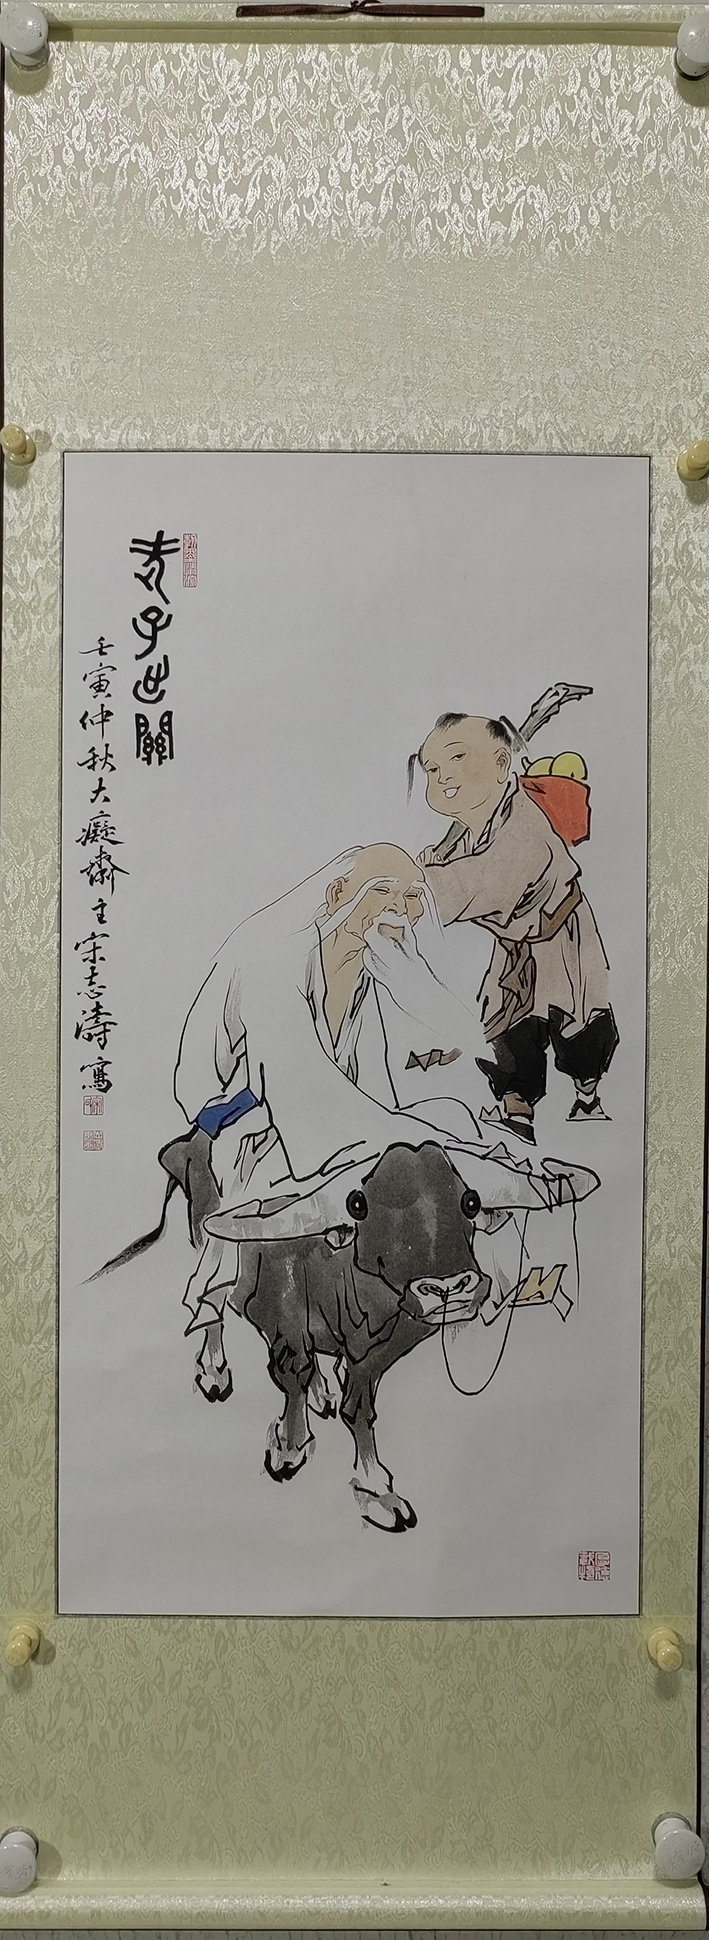 老子出關
壬寅仲秋大癡齋主宋志濤寫